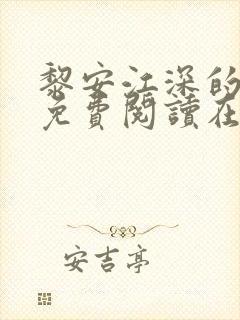 黎安江深的
免費閱讀在
安吉亭